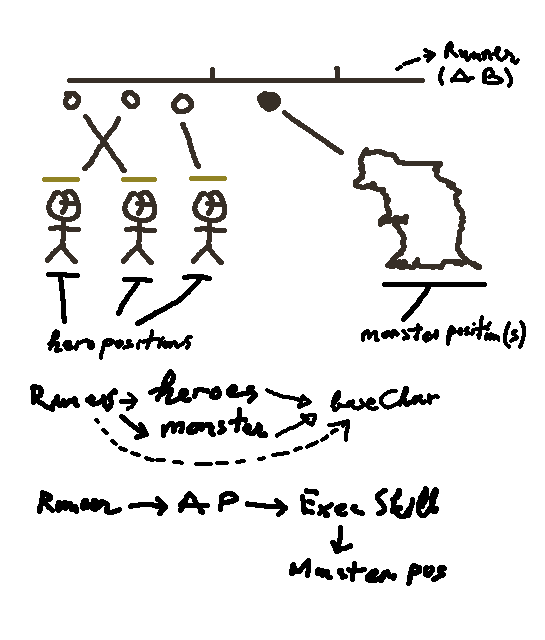 Runner
(AB)
hero positions
monster position(s)
Runner heroes baseChar
monster
Runner AP Exec Skill
Monster pos